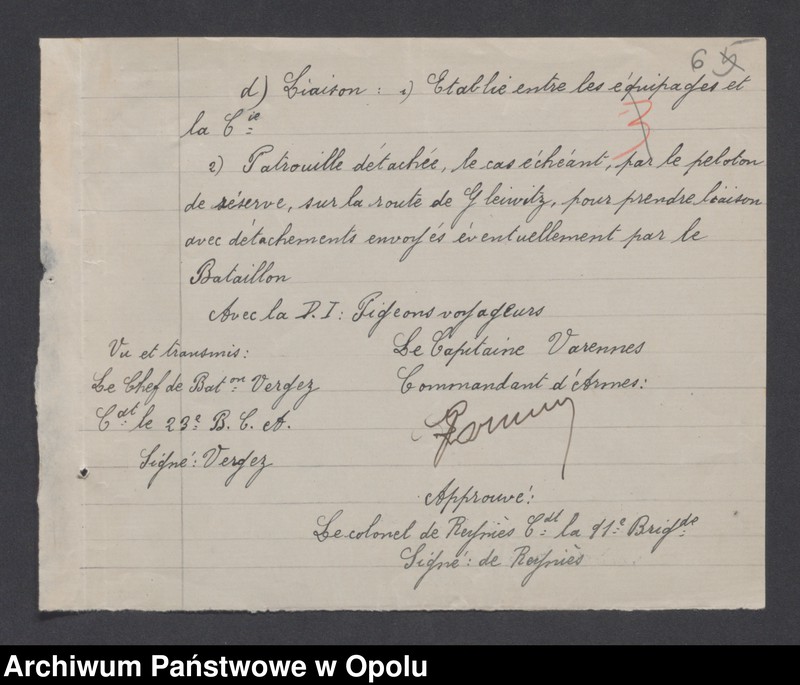 6
d) Liaison : 1) Etablie entre les équipages et
la Cie
3
2) Patrouille détachée, le cas échéant, par le peloton
de réserve, sur la route de Gleiwitz, pour prendre liaison
avec détachements envoyés éventuellement par le
Bataillon
Avec la D.I : Pigeons voyageurs
Vu et transmis :
Le Chef de Baton Vergez
Cdt le 23e B. C. A.
Signé : Vergez
Le Capitaine Varennes
Commandant d'Armes :
Approuvé :
Le colonel de Reyniès Cdt la 91e Brigde
Signé : de Reyniès
Archiwum Państwowe w Opolu